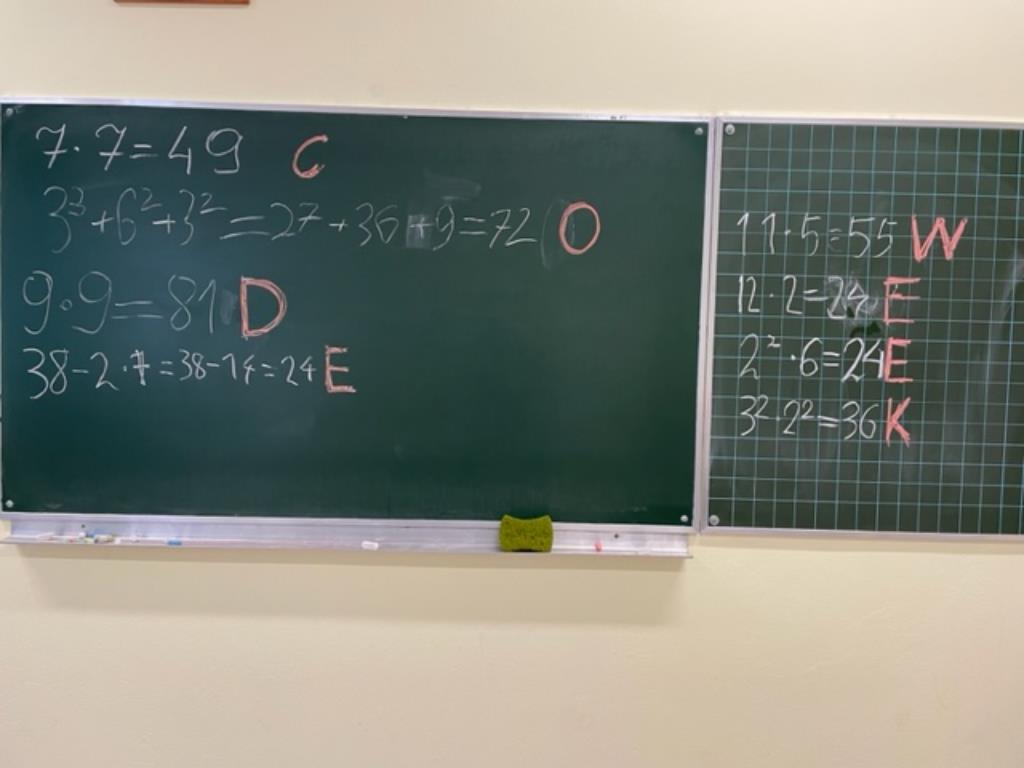 7·7=49 C
3³+6²+3²=27+36+9=72 O
9·9=81 D
38-2·7=38-14=24 E
11·5=55 W
12·2=24 E
2²·6=24 E
3²·2²=36 K